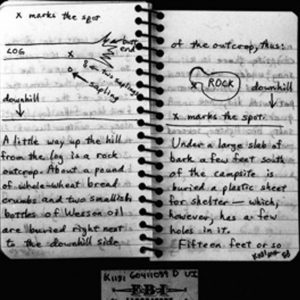 x marks the spot
burnt
end
LOG
x
two saplings
sapling
downhill
A little way up the hill
from the log is a rock
outcrop. About a pound
of whole-wheat bread
crumbs and two smallish
bottles of Wesson oil
are buried right next
to the downhill side
of the outcrop, thus:
x
ROCK
downhill
x marks the spot.
Under a large slab of
bark a few feet south
of the campsite is
buried a plastic sheet
for shelter — which,
however, has a few
holes in it.
Fifteen feet or so
FBI